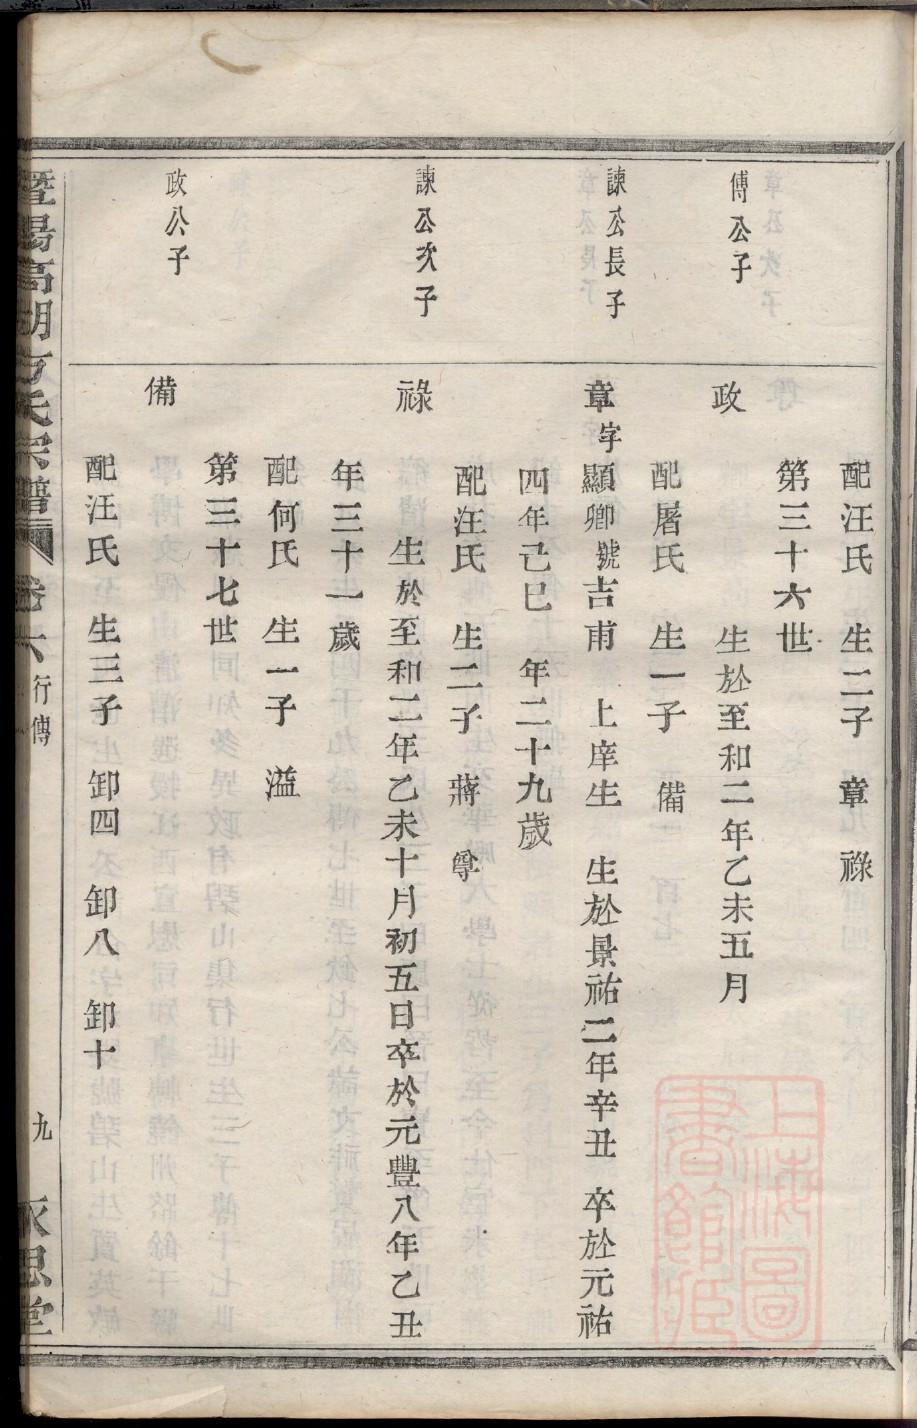 配汪氏 生二子 章 祿
第三十六世
傅公子
政 生於至和二年乙未五月
配屠氏 生一子 備
諫公長子
章字顯卿號吉甫 上庠生 生於景祐二年辛丑 卒於元祐
四年己巳 年二十九歲
配汪氏 生二子 蔣 孯
諫公次子
祿 生於至和二年乙未十月初五日卒於元豐八年乙丑
年三十一歲
配何氏 生一子 溢
第三十七世
政公子
備
配汪氏 生三子 卸四 卸八 卸十
暨陽高湖方氏宗譜 卷六 行傳 九 永思堂
上海圖書館藏